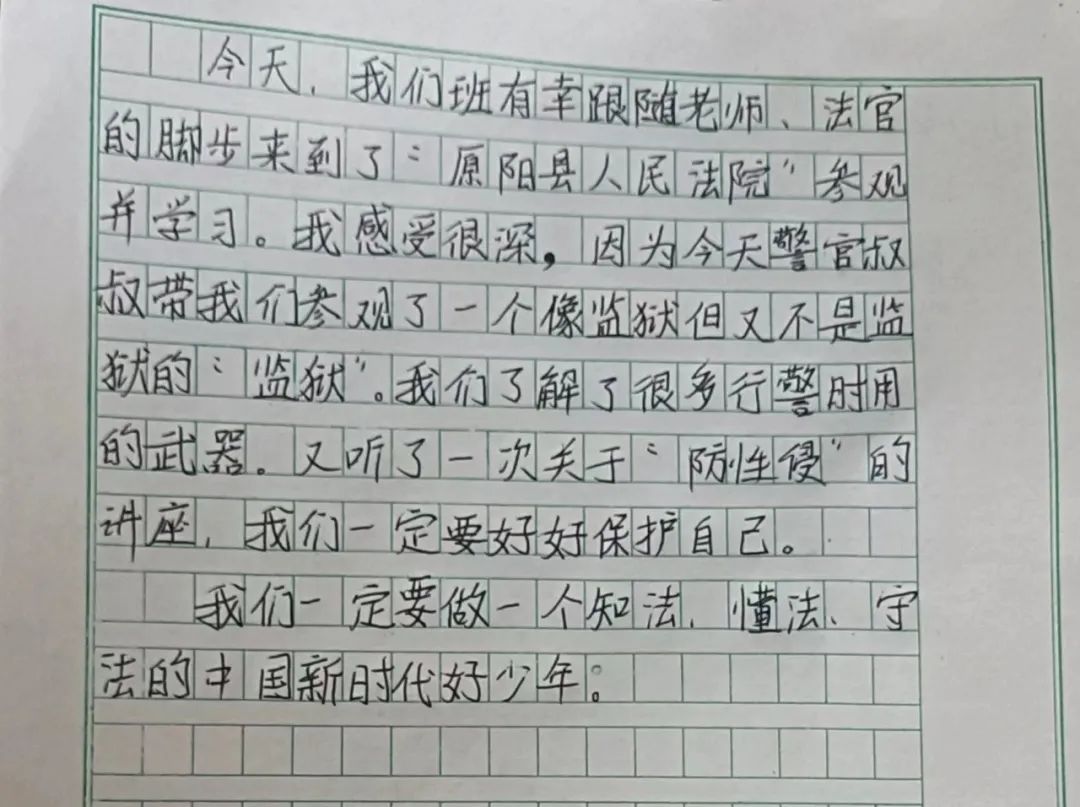 今天，我们班有幸跟随老师、法官
的脚步来到了“原阳县人民法院”参观
并学习。我感受很深，因为今天警官叔
叔带我们参观了一个像监狱但又不是监
狱的“监狱”。我们了解了很多行警时用
的武器。又听了一次关于“防性侵”的
讲座，我们一定要好好保护自己。
我们一定要做一个知法、懂法、守
法的中国新时代好少年。